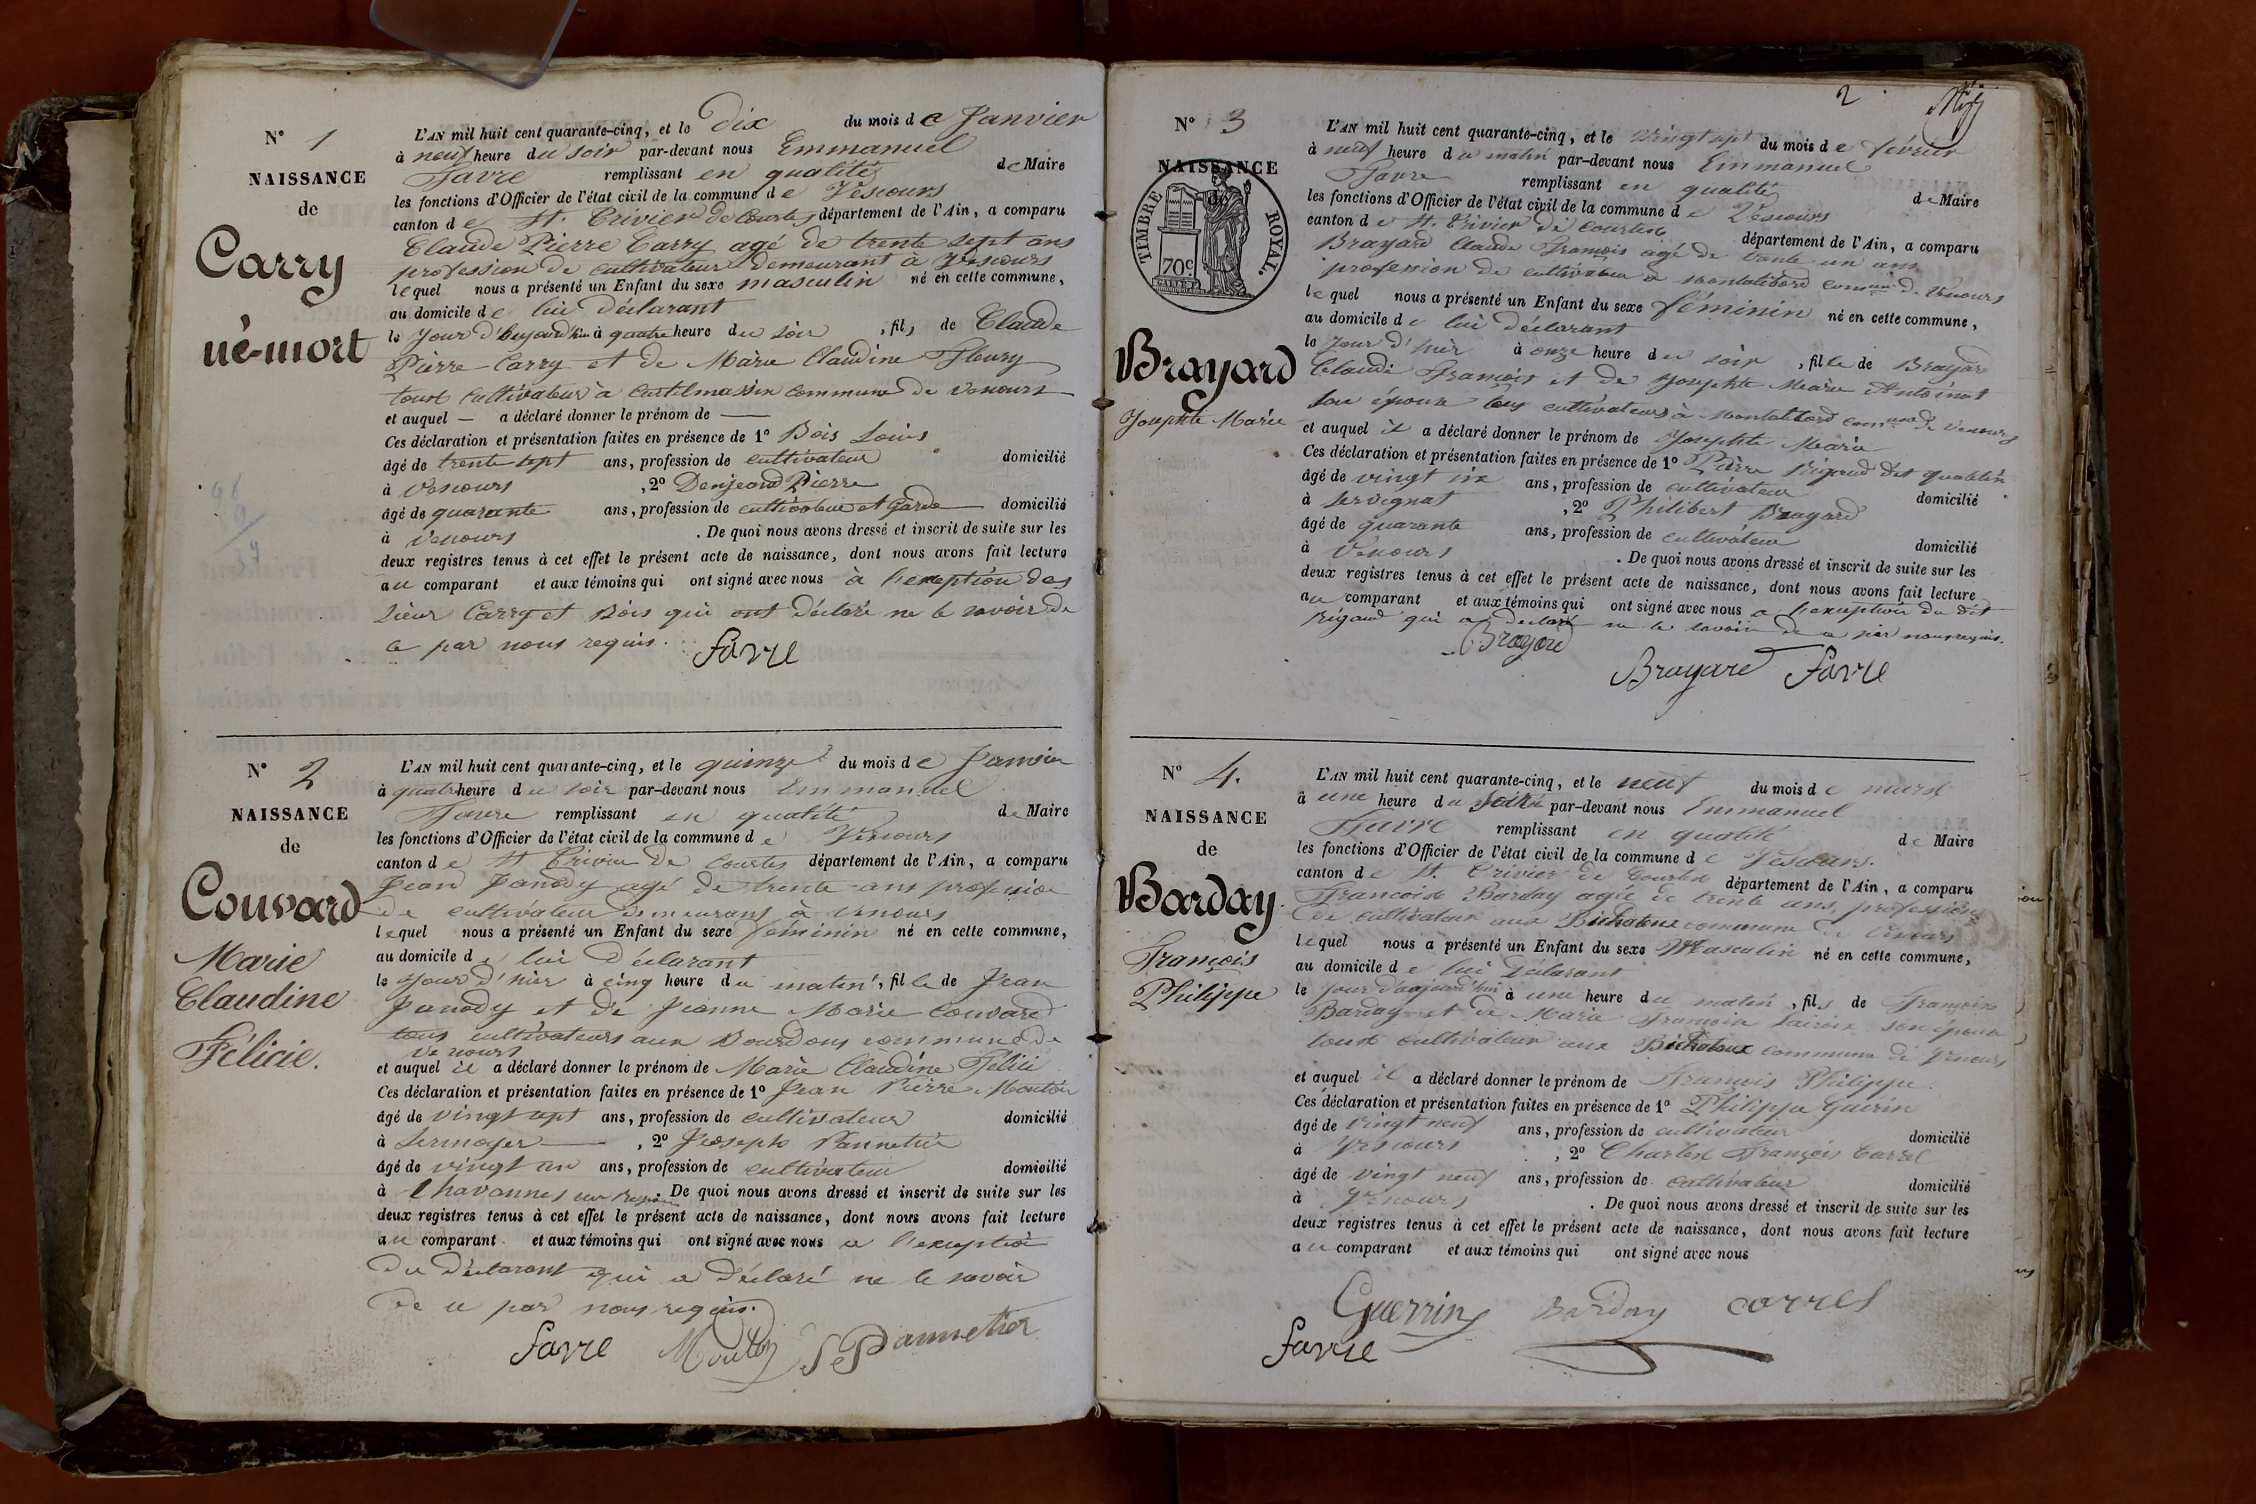 N° 1
NAISSANCE
de
Carry
né-mort
L'AN mil huit cent quarante-cinq, et le dix du mois de Janvier
à neuf heure du soir par-devant nous Emmanuel
Favre remplissant en qualité de Maire
les fonctions d'Officier de l'état civil de la commune de Vescours
canton de St. Trivier de Courtes département de l'Ain, a comparu
Claude Pierre Carry agé de trente sept ans
profession de cultivateur demeurant à Vescours
lequel nous a présenté un Enfant du sexe masculin né en cette commune,
au domicile de lui déclarant
le jour d'aujourd'hui à quatre heure du soir, fils de Claude
Pierre Carry et de Marie Claudine Fleury
tous cultivateur à commune de Vescours
et auquel — a déclaré donner le prénom de —
Ces déclaration et présentation faites en présence de 1° Bois Louis
âgé de trente sept ans, profession de cultivateur domicilié
à Vescours, 2° Denjean Pierre
âgé de quarante ans, profession de cultivateur et Garde domicilié
à Vescours. De quoi nous avons dressé et inscrit de suite sur les
deux registres tenus à cet effet le présent acte de naissance, dont nous avons fait lecture
au comparant et aux témoins qui ont signé avec nous à l'exception des
sieur Carry et Bois qui ont déclaré ne le savoir de
ce par nous requis.
Favre
N° 2
NAISSANCE
de
Couvard
Marie
Claudine
Félicie.
L'AN mil huit cent quarante-cinq, et le quinze du mois de Janvier
à quatre heure du soir par-devant nous Emmanuel
Favre remplissant en qualité de Maire
les fonctions d'Officier de l'état civil de la commune de Vescours
canton de St Trivier de Courtes département de l'Ain, a comparu
Jean Janody agé de trente ans profession
de cultivateur demeurant à Vescours
lequel nous a présenté un Enfant du sexe féminin né en cette commune,
au domicile de lui déclarant
le jour d'hier à cinq heure du matin, fille de Jean
Janody et de Jeanne Marie Couvard
tous cultivateurs aux Bourdons commune de
Vescours
et auquel il a déclaré donner le prénom de Marie Claudine Félicie
Ces déclaration et présentation faites en présence de 1° Jean Pierre Mouton
âgé de vingt sept ans, profession de cultivateur domicilié
à Sermoyer, 2° Joseph Pannetier
âgé de vingt un ans, profession de cultivateur domicilié
à Chavannes sur Reyssouze. De quoi nous avons dressé et inscrit de suite sur les
deux registres tenus à cet effet le présent acte de naissance, dont nous avons fait lecture
au comparant et aux témoins qui ont signé avec nous à l'exception
du déclarant qui a déclaré ne le savoir
de ce par nous requis.
Favre Mouton Pannetier
2
N° 3
NAISSANCE
de
TIMBRE ROYAL.
70c
Brayard
Josephte Marie
L'AN mil huit cent quarante-cinq, et le vingt sept du mois de février
à neuf heure du matin par-devant nous Emmanuel
Favre remplissant en qualité de Maire
les fonctions d'Officier de l'état civil de la commune de Vescours
canton de St. Trivier de Courtes département de l'Ain, a comparu
Brayard Claude François agé de trente un ans
profession de cultivateur à commune de Vescours
lequel nous a présenté un Enfant du sexe féminin né en cette commune,
au domicile de lui déclarant
le jour d'hier à onze heure du soir, fille de Brayard
Claude François et de Josephte Marie Antoinat
son épouse tous cultivateurs à commune de Vescours
et auquel il a déclaré donner le prénom de Josephte Marie
Ces déclaration et présentation faites en présence de 1° Pierre Rigaud dit
âgé de vingt six ans, profession de cultivateur domicilié
à Servignat, 2° Philibert Brayard
âgé de quarante ans, profession de cultivateur domicilié
à Vescours. De quoi nous avons dressé et inscrit de suite sur les
deux registres tenus à cet effet le présent acte de naissance, dont nous avons fait lecture
au comparant et aux témoins qui ont signé avec nous à l'exception du dit
Rigaud qui a déclaré ne le savoir de ce par nous requis.
Brayard
Brayard Favre
N° 4.
NAISSANCE
de
Barday
François
Philippe
L'AN mil huit cent quarante-cinq, et le neuf du mois de mars
à une heure du soir par-devant nous Emmanuel
Favre remplissant en qualité de Maire
les fonctions d'Officier de l'état civil de la commune de Vescours.
canton de St. Trivier de Courtes département de l'Ain, a comparu
François Barday agé de trente ans, profession
de cultivateur aux Bichatoux commune de Vescours
lequel nous a présenté un Enfant du sexe Masculin né en cette commune,
au domicile de lui déclarant
le jour d'aujourd'hui à une heure du matin, fils de François
Barday et de Marie Françoise son épouse
tous cultivateur aux Bichatoux commune de Vescours
et auquel il a déclaré donner le prénom de François Philippe
Ces déclaration et présentation faites en présence de 1° Philippe Guerin
âgé de vingt neuf ans, profession de cultivateur domicilié
à Vescours, 2° Charles François Carrel
âgé de vingt neuf ans, profession de cultivateur domicilié
à Vescours. De quoi nous avons dressé et inscrit de suite sur les
deux registres tenus à cet effet le présent acte de naissance, dont nous avons fait lecture
au comparant et aux témoins qui ont signé avec nous
Guerrin Barday Correl
Favre